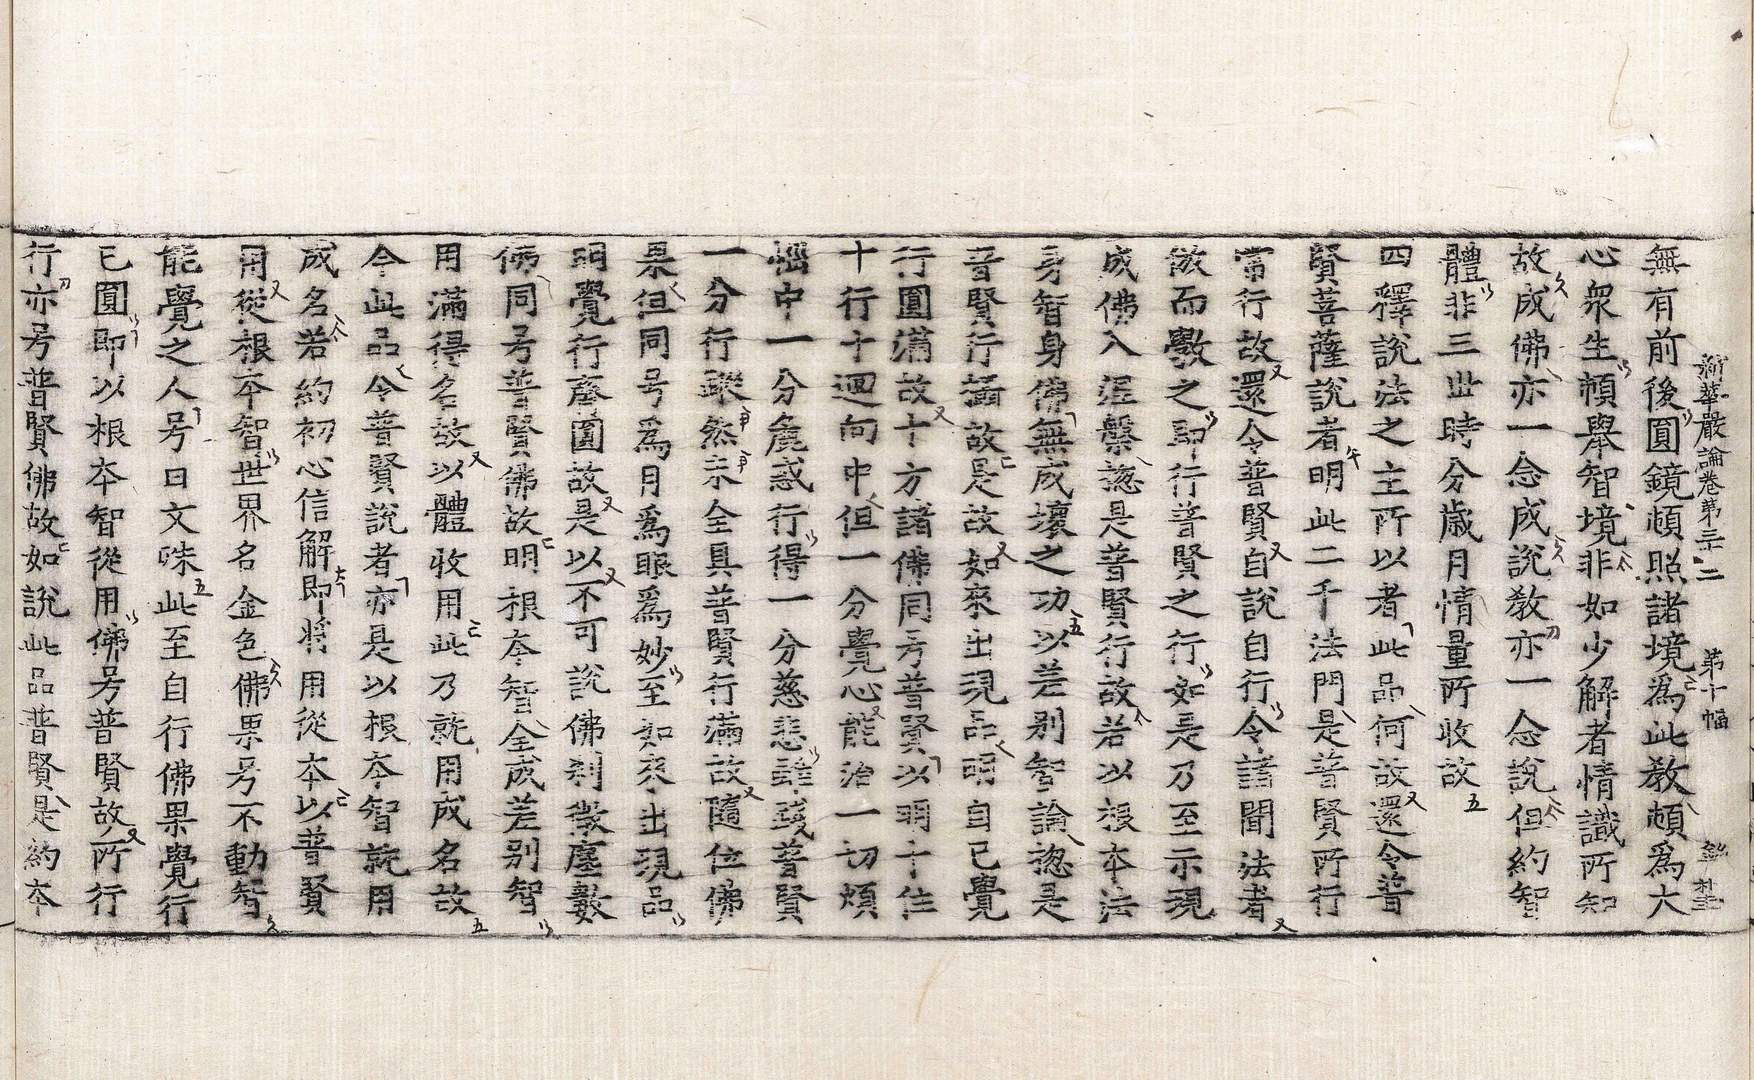 新華嚴論卷第三十二 第十幅
無有前後圓鏡頓照諸境爲此教頓爲大
心衆生頓舉智境非如少解者情識所知
故成佛亦一念成說教亦一念說但約智
體非三世時分歲月情量所收故
四釋說法之主所以者此品何故還令普
賢菩薩說者明此二千法門是普賢所行
常行故還令普賢自說自行令諸聞法者
倣而斆之即行普賢之行如是乃至示現
成佛入涅槃揔是普賢行故若以根本法
身智身佛無成壞之功以差別智論揔是
普賢行攝故是故如來出現品明自己覺
行圓滿故十方諸佛同号普賢以明十住
十行十迴向中但一分覺心能治一切煩
惱中一分麁惑行得一分慈悲雖殘普賢
一分行蹤然示全具普賢行滿故隨位佛
果但同号爲月爲眼爲妙至如來出現品
明覺行齊圓故是以不可說佛刹微塵數
佛同号普賢佛故明根本智全成差別智
用滿得名故以體收用此乃就用成名故
今此品令普賢說者亦是以根本智就用
成名若約初心信解即將用從本以普賢
用從根本智世界名金色佛果号不動智
能覺之人号曰文殊此至自行佛果覺行
已圓即以根本智從用佛号普賢故所行
行亦号普賢佛故如說此品普賢是約本